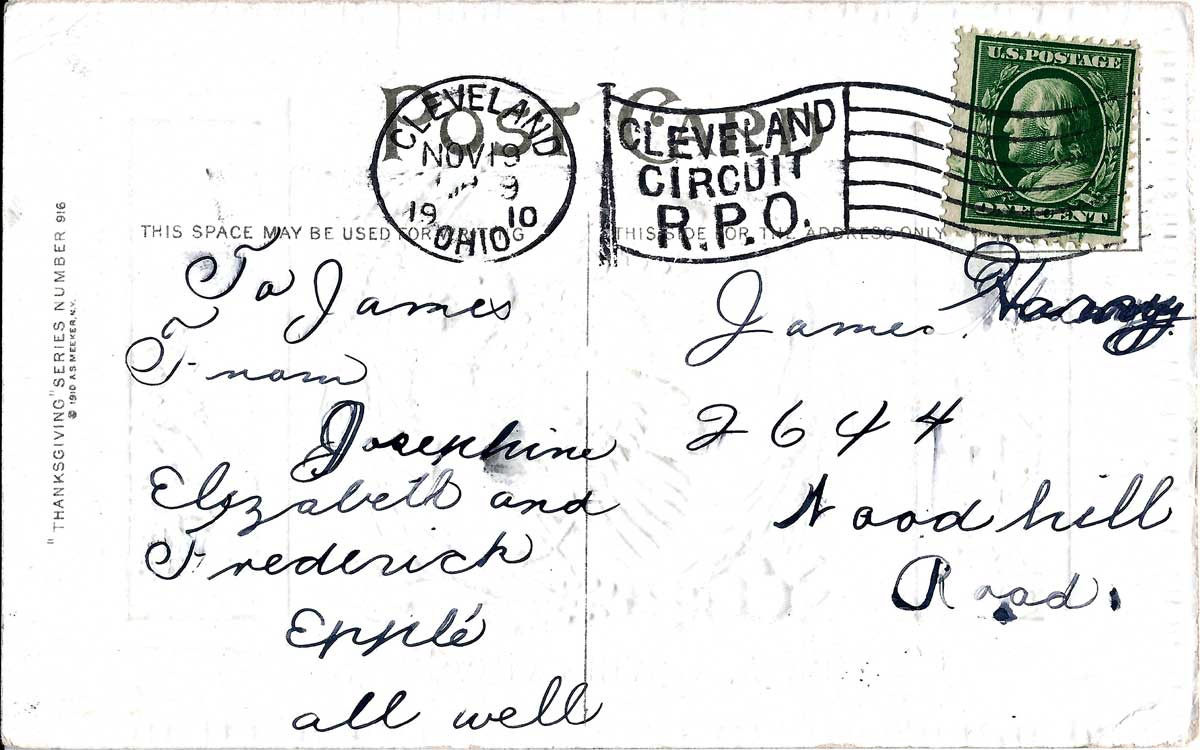 POST CARD
CLEVELAND
NOV 19
9
19 10
OHIO
CLEVELAND
CIRCUIT
R.P.O.
U.S. POSTAGE
THIS SPACE MAY BE USED FOR WRITING
THIS SIDE FOR THE ADDRESS ONLY
"THANKSGIVING" SERIES NUMBER 916
© 1910 A.S. MEEKER, N.Y.
To James
From
Josephine
Elizabeth and
Frederick
Epplé
all well
James
2644
Woodhill
Road.